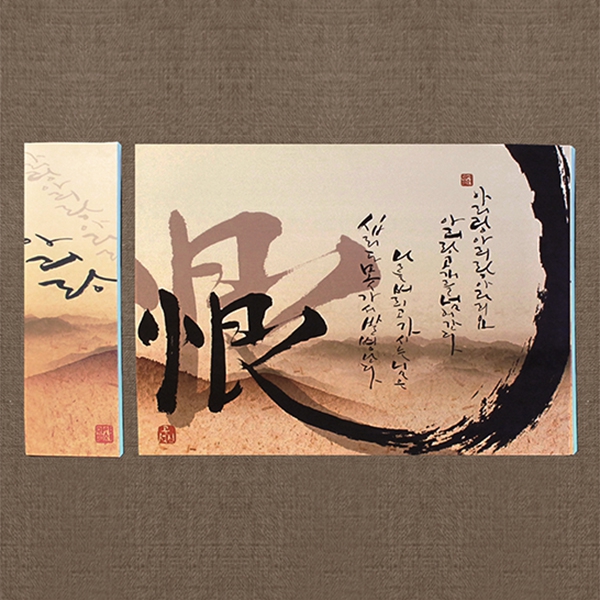 아리랑아리랑아라리요
아리랑고개로넘어간다
나를버리고가시는님은
십리도못가서발병난다
恨